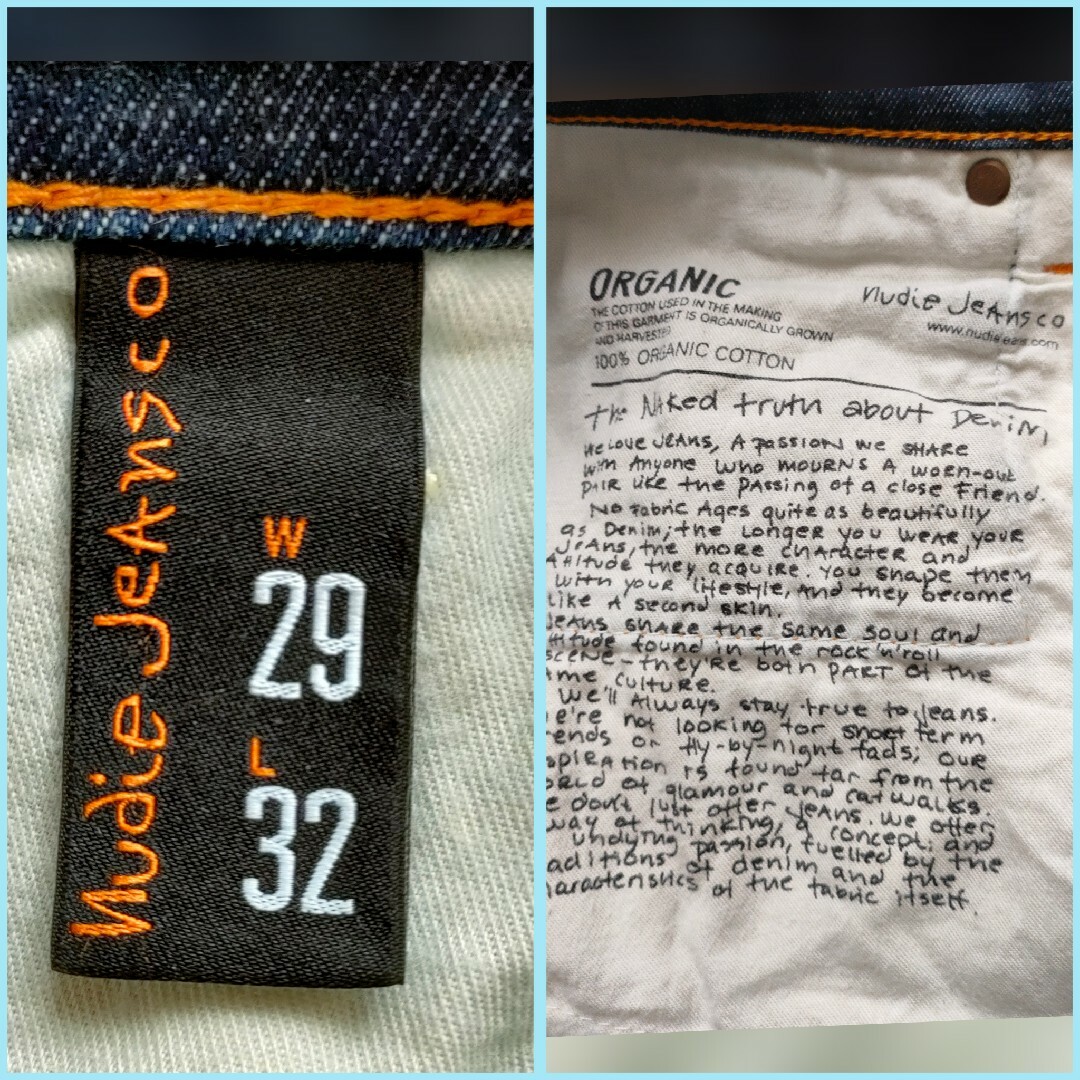 Nudie Jeans co
W
29
L
32
ORGANIC
THE COTTON USED IN THE MAKING
OF THIS GARMENT IS ORGANICALLY GROWN
AND HARVESTED
100% ORGANIC COTTON
Nudie Jeans co
www.nudiejeans.com
The Naked truth about Denim
We love jeans, a passion we share
with anyone who mourns a worn-out
pair like the passing of a close friend.
No fabric ages quite as beautifully
as denim; the longer you wear your
jeans, the more character and
attitude they acquire. You shape them
with your lifestyle, and they become
like a second skin.
Jeans share the same soul and
attitude found in the rock'n'roll
scene - they're both part of the
ame culture.
We'll always stay true to jeans.
e're not looking for short term
ends or fly-by-night fads; our
spiration is found far from the
orld of glamour and catwalks.
e don't just offer jeans. We offer
way of thinking, a concept; and
undying passion, fuelled by the
aditions of denim and the
haracteristics of the fabric itself.